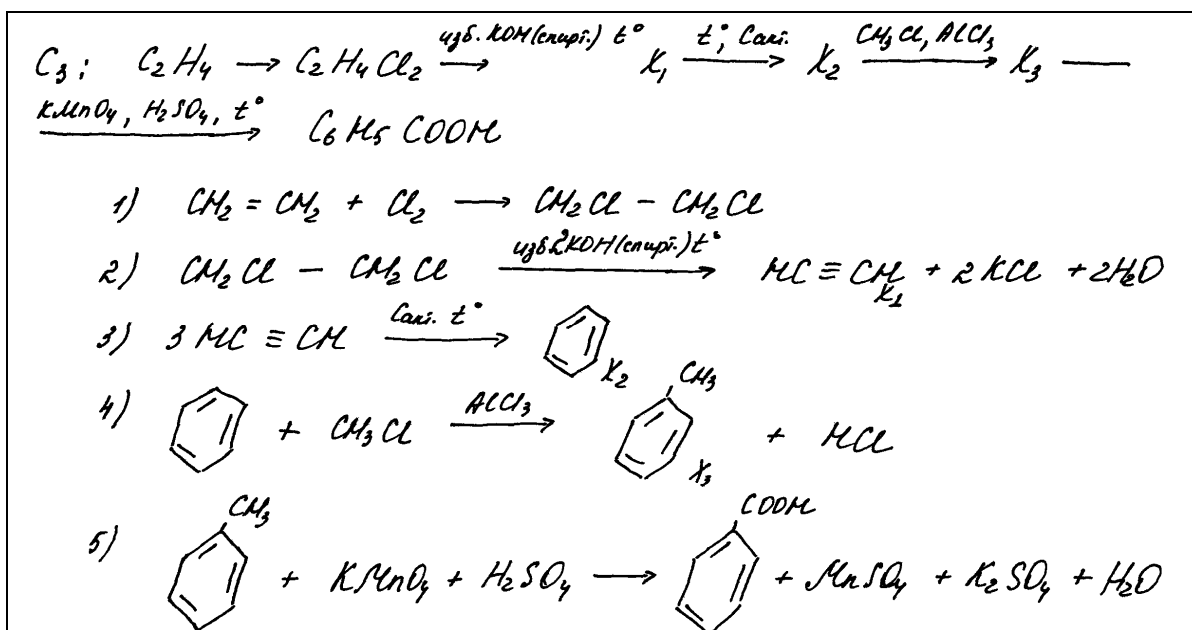 C3: C2H4 → C2H4Cl2 изб. KOH(спирт.) t° → X1 t°, Cакт. → X2 CH3Cl, AlCl3 → X3 —
KMnO4, H2SO4, t° → C6H5COOH
1) CH2 = CH2 + Cl2 → CH2Cl – CH2Cl
2) CH2Cl – CH2Cl изб.2KOH(спирт.) t° → HC ≡ CH + 2KCl + 2H2O
X1
3) 3HC ≡ CH Cакт. t° → X2
4) + CH3Cl AlCl3 → CH3 X3 + HCl
5) CH3 + KMnO4 + H2SO4 → COOH + MnSO4 + K2SO4 + H2O